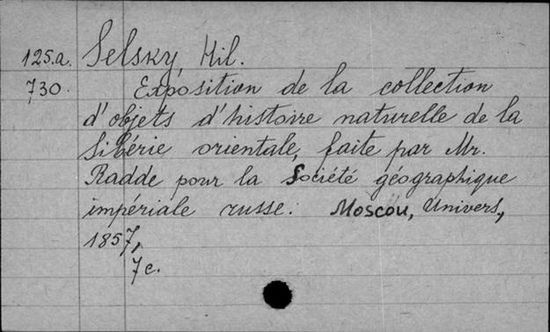 125.a. Selsky, Hil.
730. Exposition de la collection
d'objets d'histoire naturelle de la
Sibérie orientale, faite par Mr.
Radde pour la Société géographique
impériale russe. Moscou, Univers.,
1857,
7c.